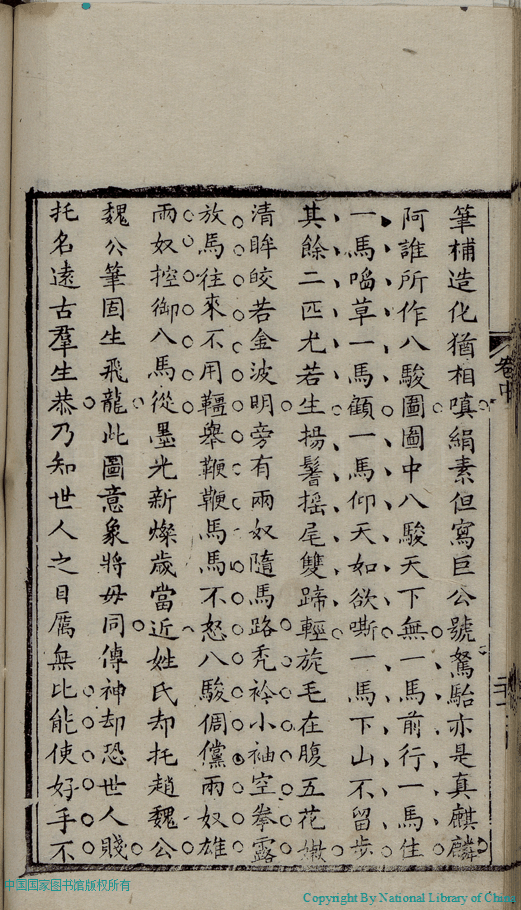 筆補造化猶相嗔絹素但寫巨公號駑駘亦是真麒麟
阿誰所作八駿圖圖中八駿天下無一馬前行一馬住
一馬嚙草一馬顧一馬仰天如欲嘶一馬下山不留步
其餘二匹尤若生揚鬐搖尾雙蹄輕旋毛在腹五花嫩
清眸皎若金波明旁有兩奴隨馬路禿衿小袖空拳露
放馬往來不用韁舉鞭鞭馬馬不怒八駿倜儻兩奴雄
兩奴控御八馬從墨光新燦歲當近姓氏却托趙魏公
魏公筆固生飛龍此圖意象將毋同傳神却恐世人賤
托名遠古羣生恭乃知世人之目贋無比能使好手不
卷中
中国国家图书馆版权所有
Copyright By National Library of China